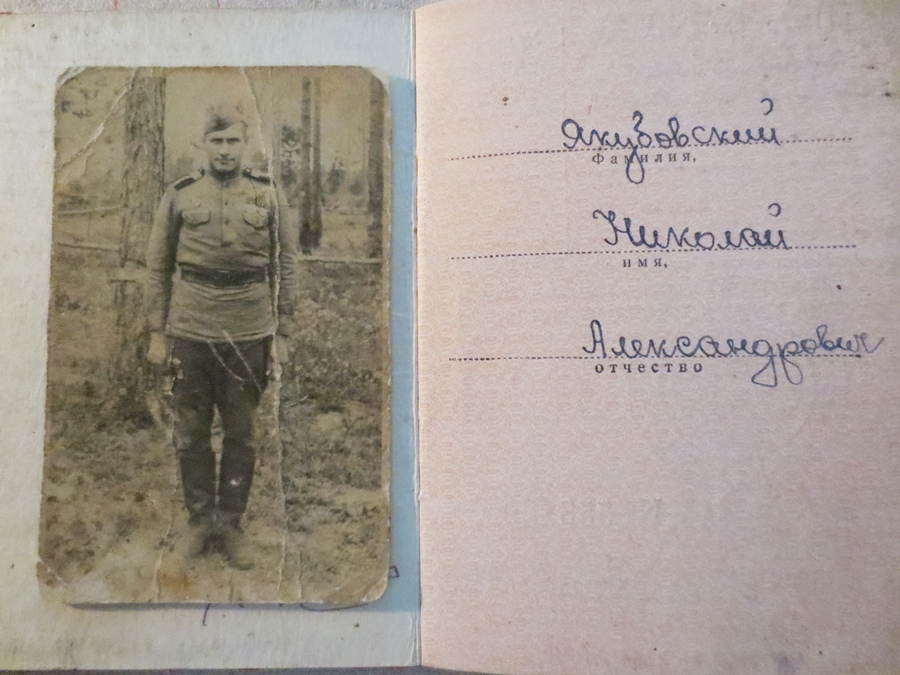 Якубовский
фамилия,
Николай
имя,
Александрович
отчество